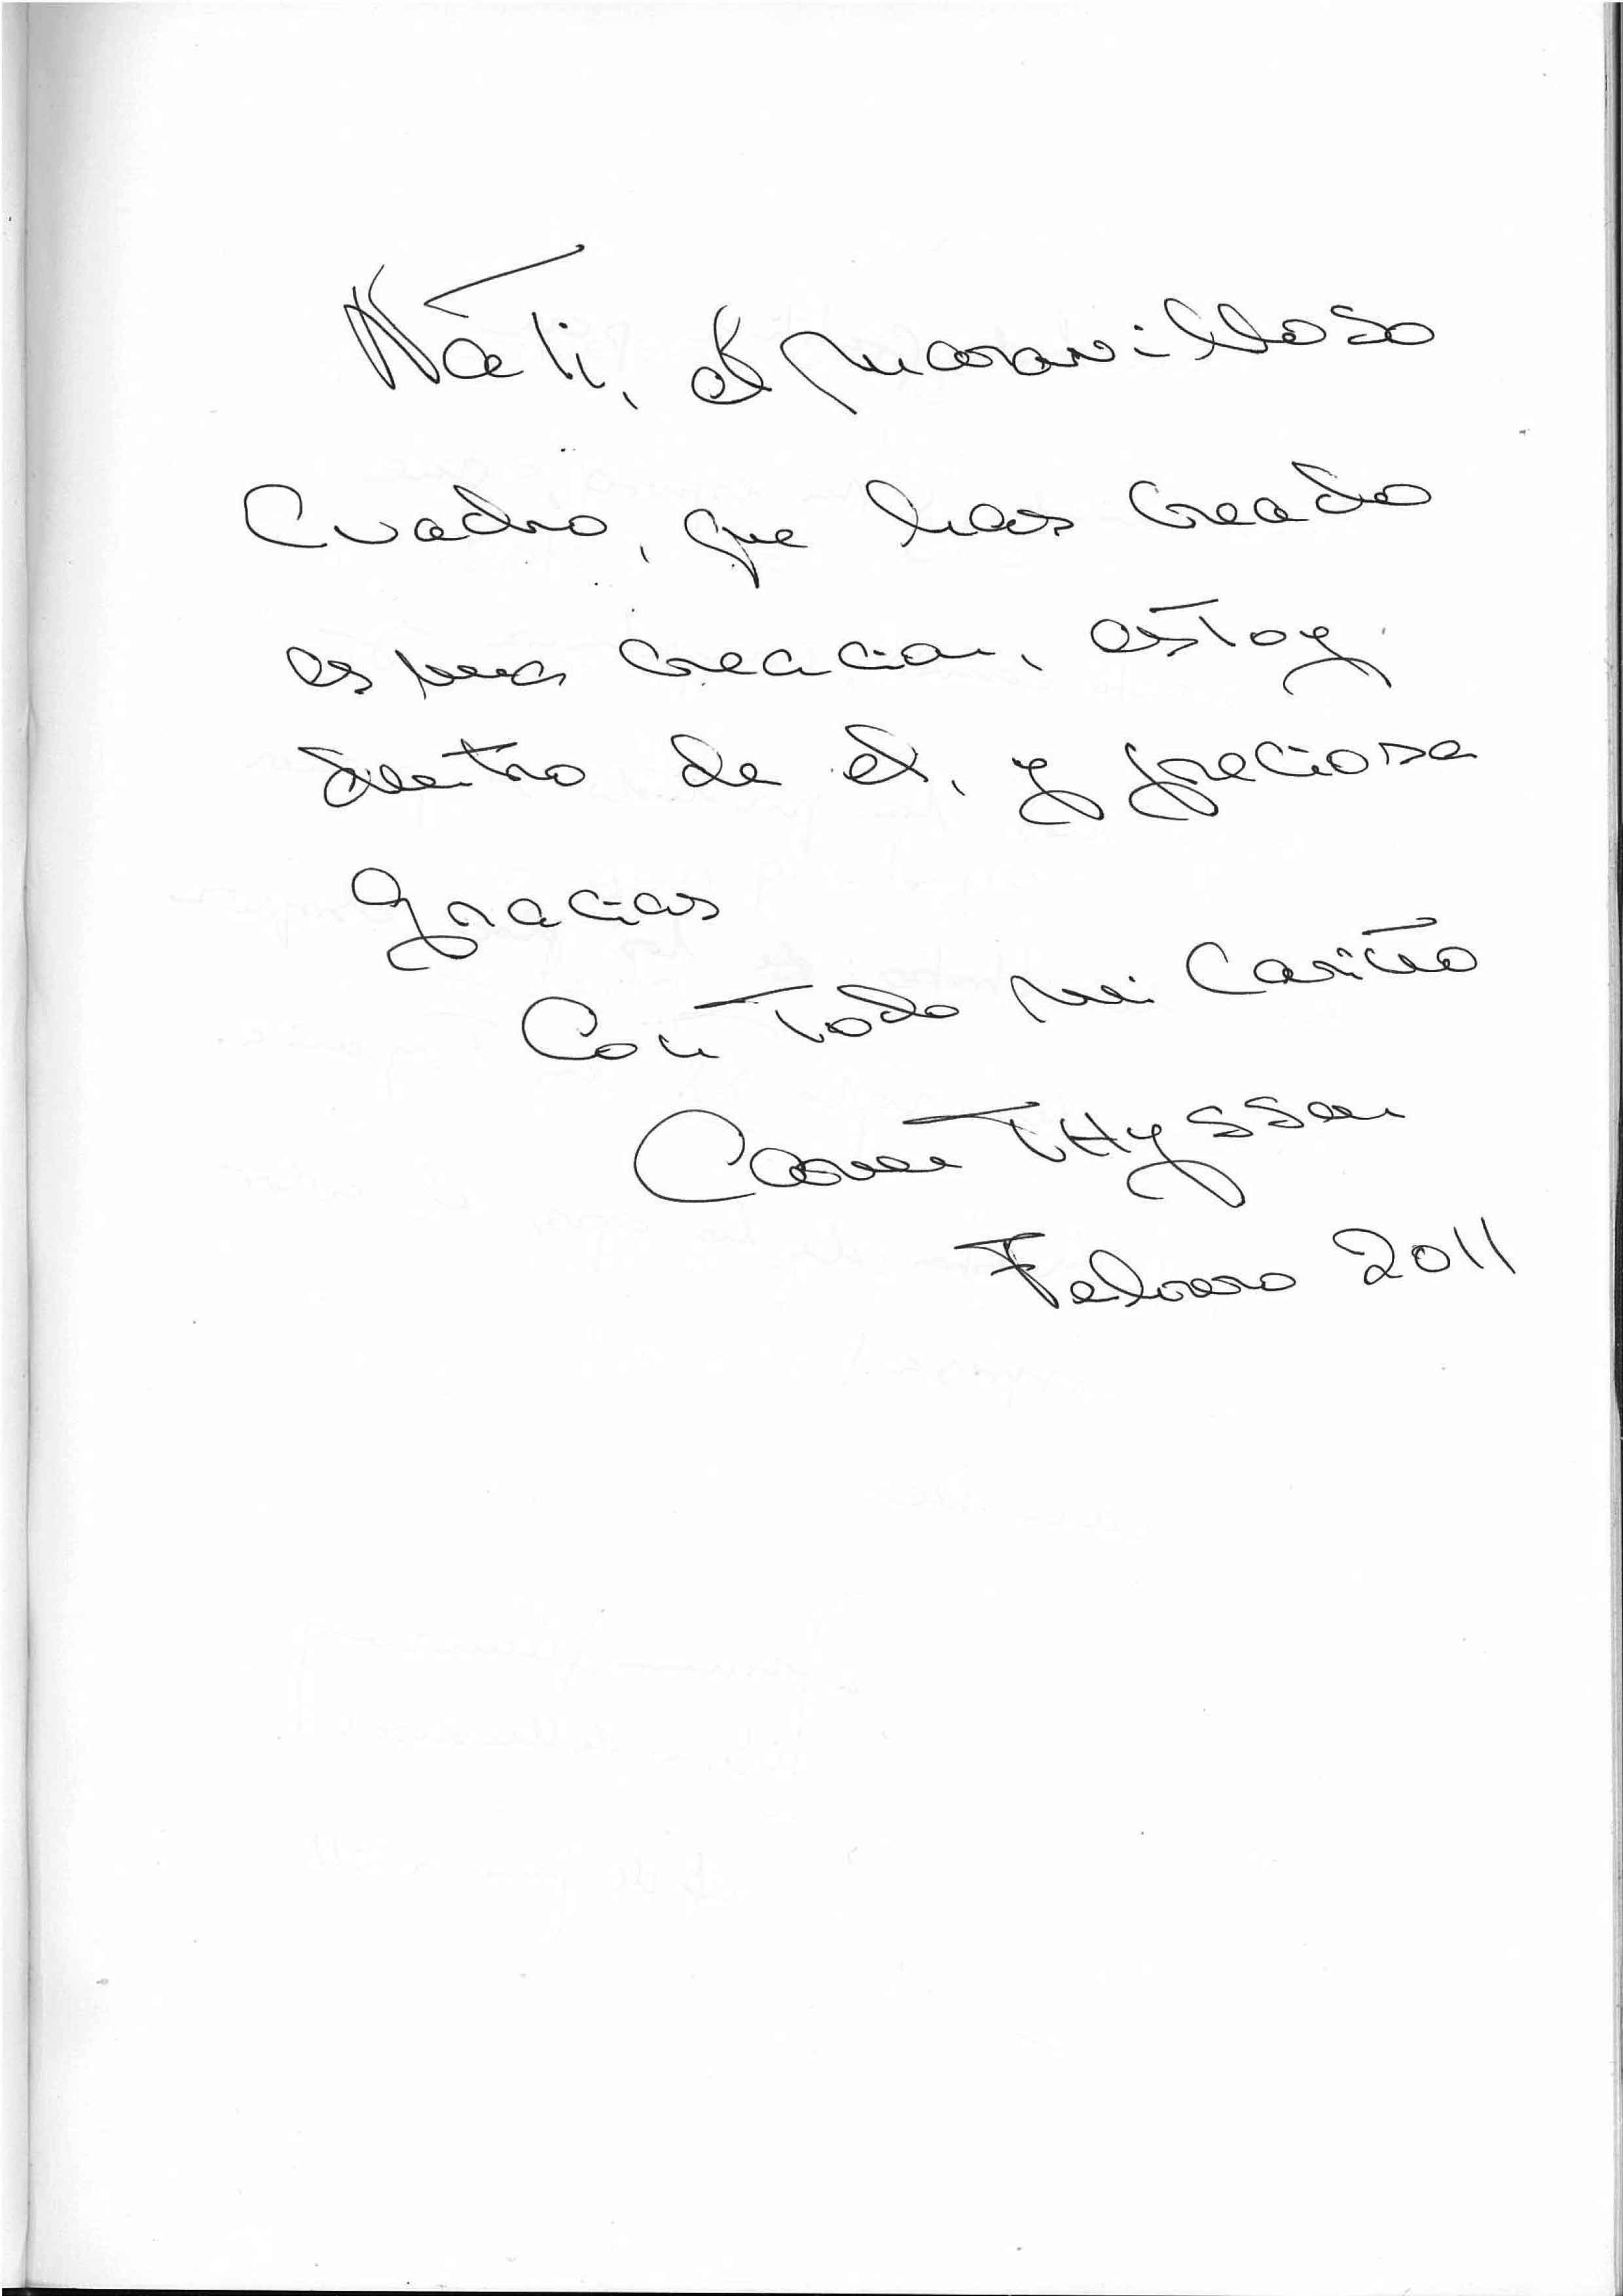 Nati, el maravilloso
Cuadro, que has creado
es pura creacion, estoy
dentro de el, y preciosa
gracias
Con Todo mi Cariño
Carmen THyssen
Febrero 2011